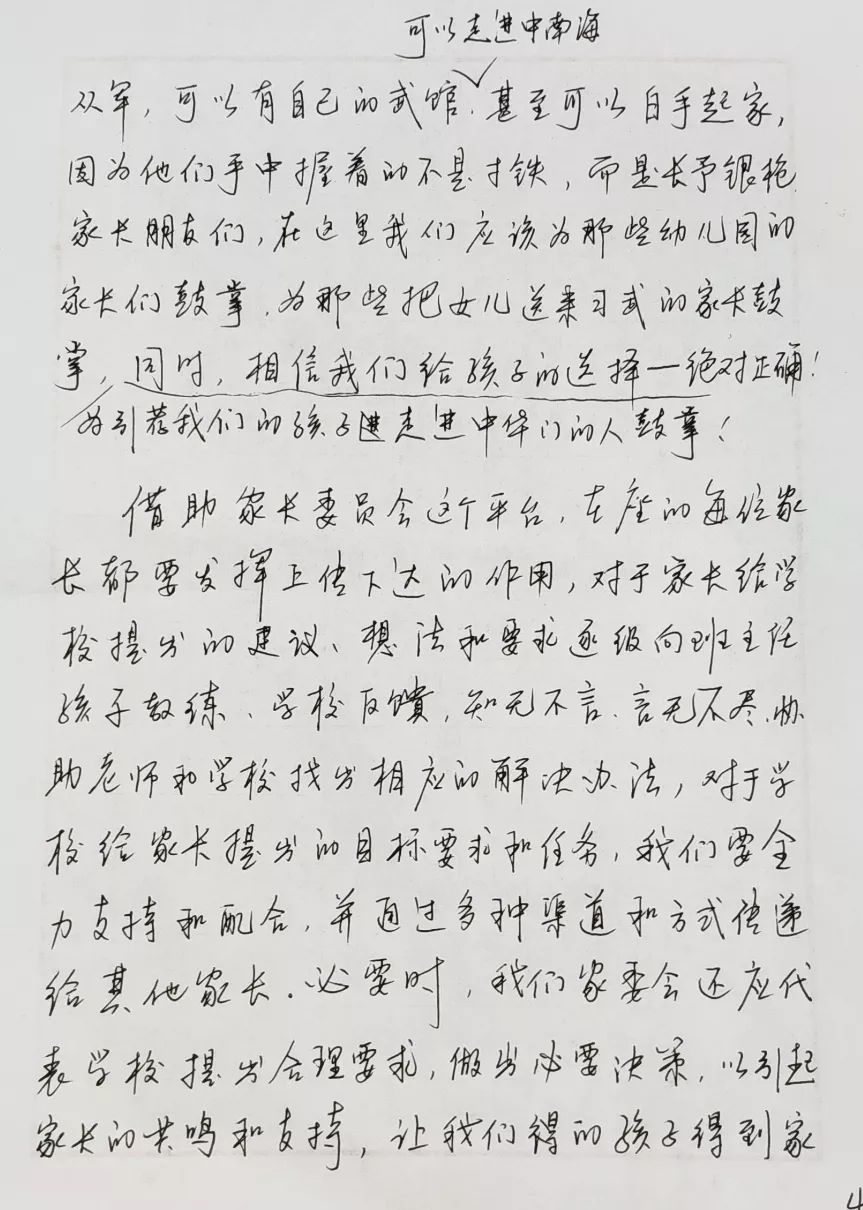 可以走进中南海
从军，可以有自己的武馆、甚至可以白手起家，
因为他们手中握着的不是寸铁，而是长予银枪
家长朋友们，在这里我们应该为那些幼儿园的
家长们鼓掌，为那些把女儿送来习武的家长鼓
掌，同时，相信我们给孩子的选择一绝对正确！
为引荐我们的孩子进走进中华门的人鼓掌！
借助家长委员会这个平台，在座的每位家
长都要发挥上传下达的作用，对于家长给学
校提出的建议、想法和要求逐级向班主任
孩子教练、学校反馈，知无不言、言无不尽，协
助老师和学校找出相应的解决办法，对于学
校给家长提出的目标要求和任务，我们要全
力支持和配合，并通过多种渠道和方式传递
给其他家长．必要时，我们家委会还应代
表学校提出合理要求，做出必要决策，以引起
家长的共鸣和支持，让我们得的孩子得到家
4